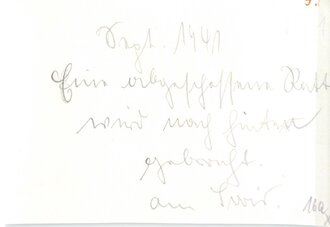 Sept. 1941
Eine abgeschossene Ratt
wird nach hinten
gebracht.
am Swir.
16a